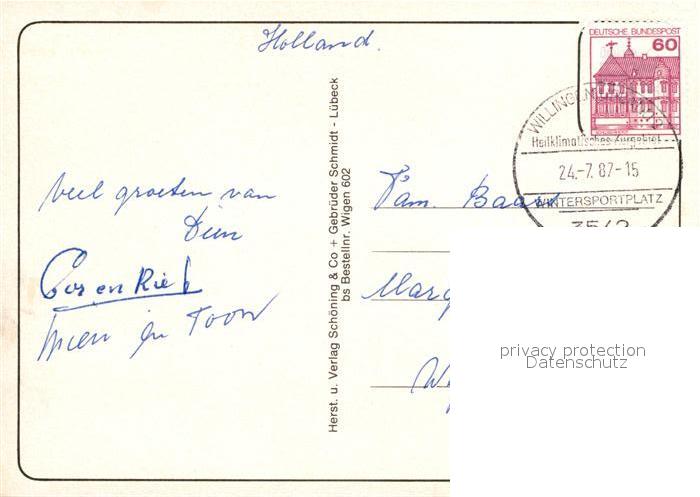 Holland.
DEUTSCHE BUNDESPOST
60
WILLINGEN
Heilklimatisches Kurgebiet
24.-7.87-15
WINTERSPORTPLATZ
3542
veel groeten van
Dien
Cor en Rie
Mien en Toon
Herst. u. Verlag Schöning & Co + Gebrüder Schmidt - Lübeck
bs Bestellnr. Wigen 602
Fam. Baa
Marg
W
privacy protection
Datenschutz